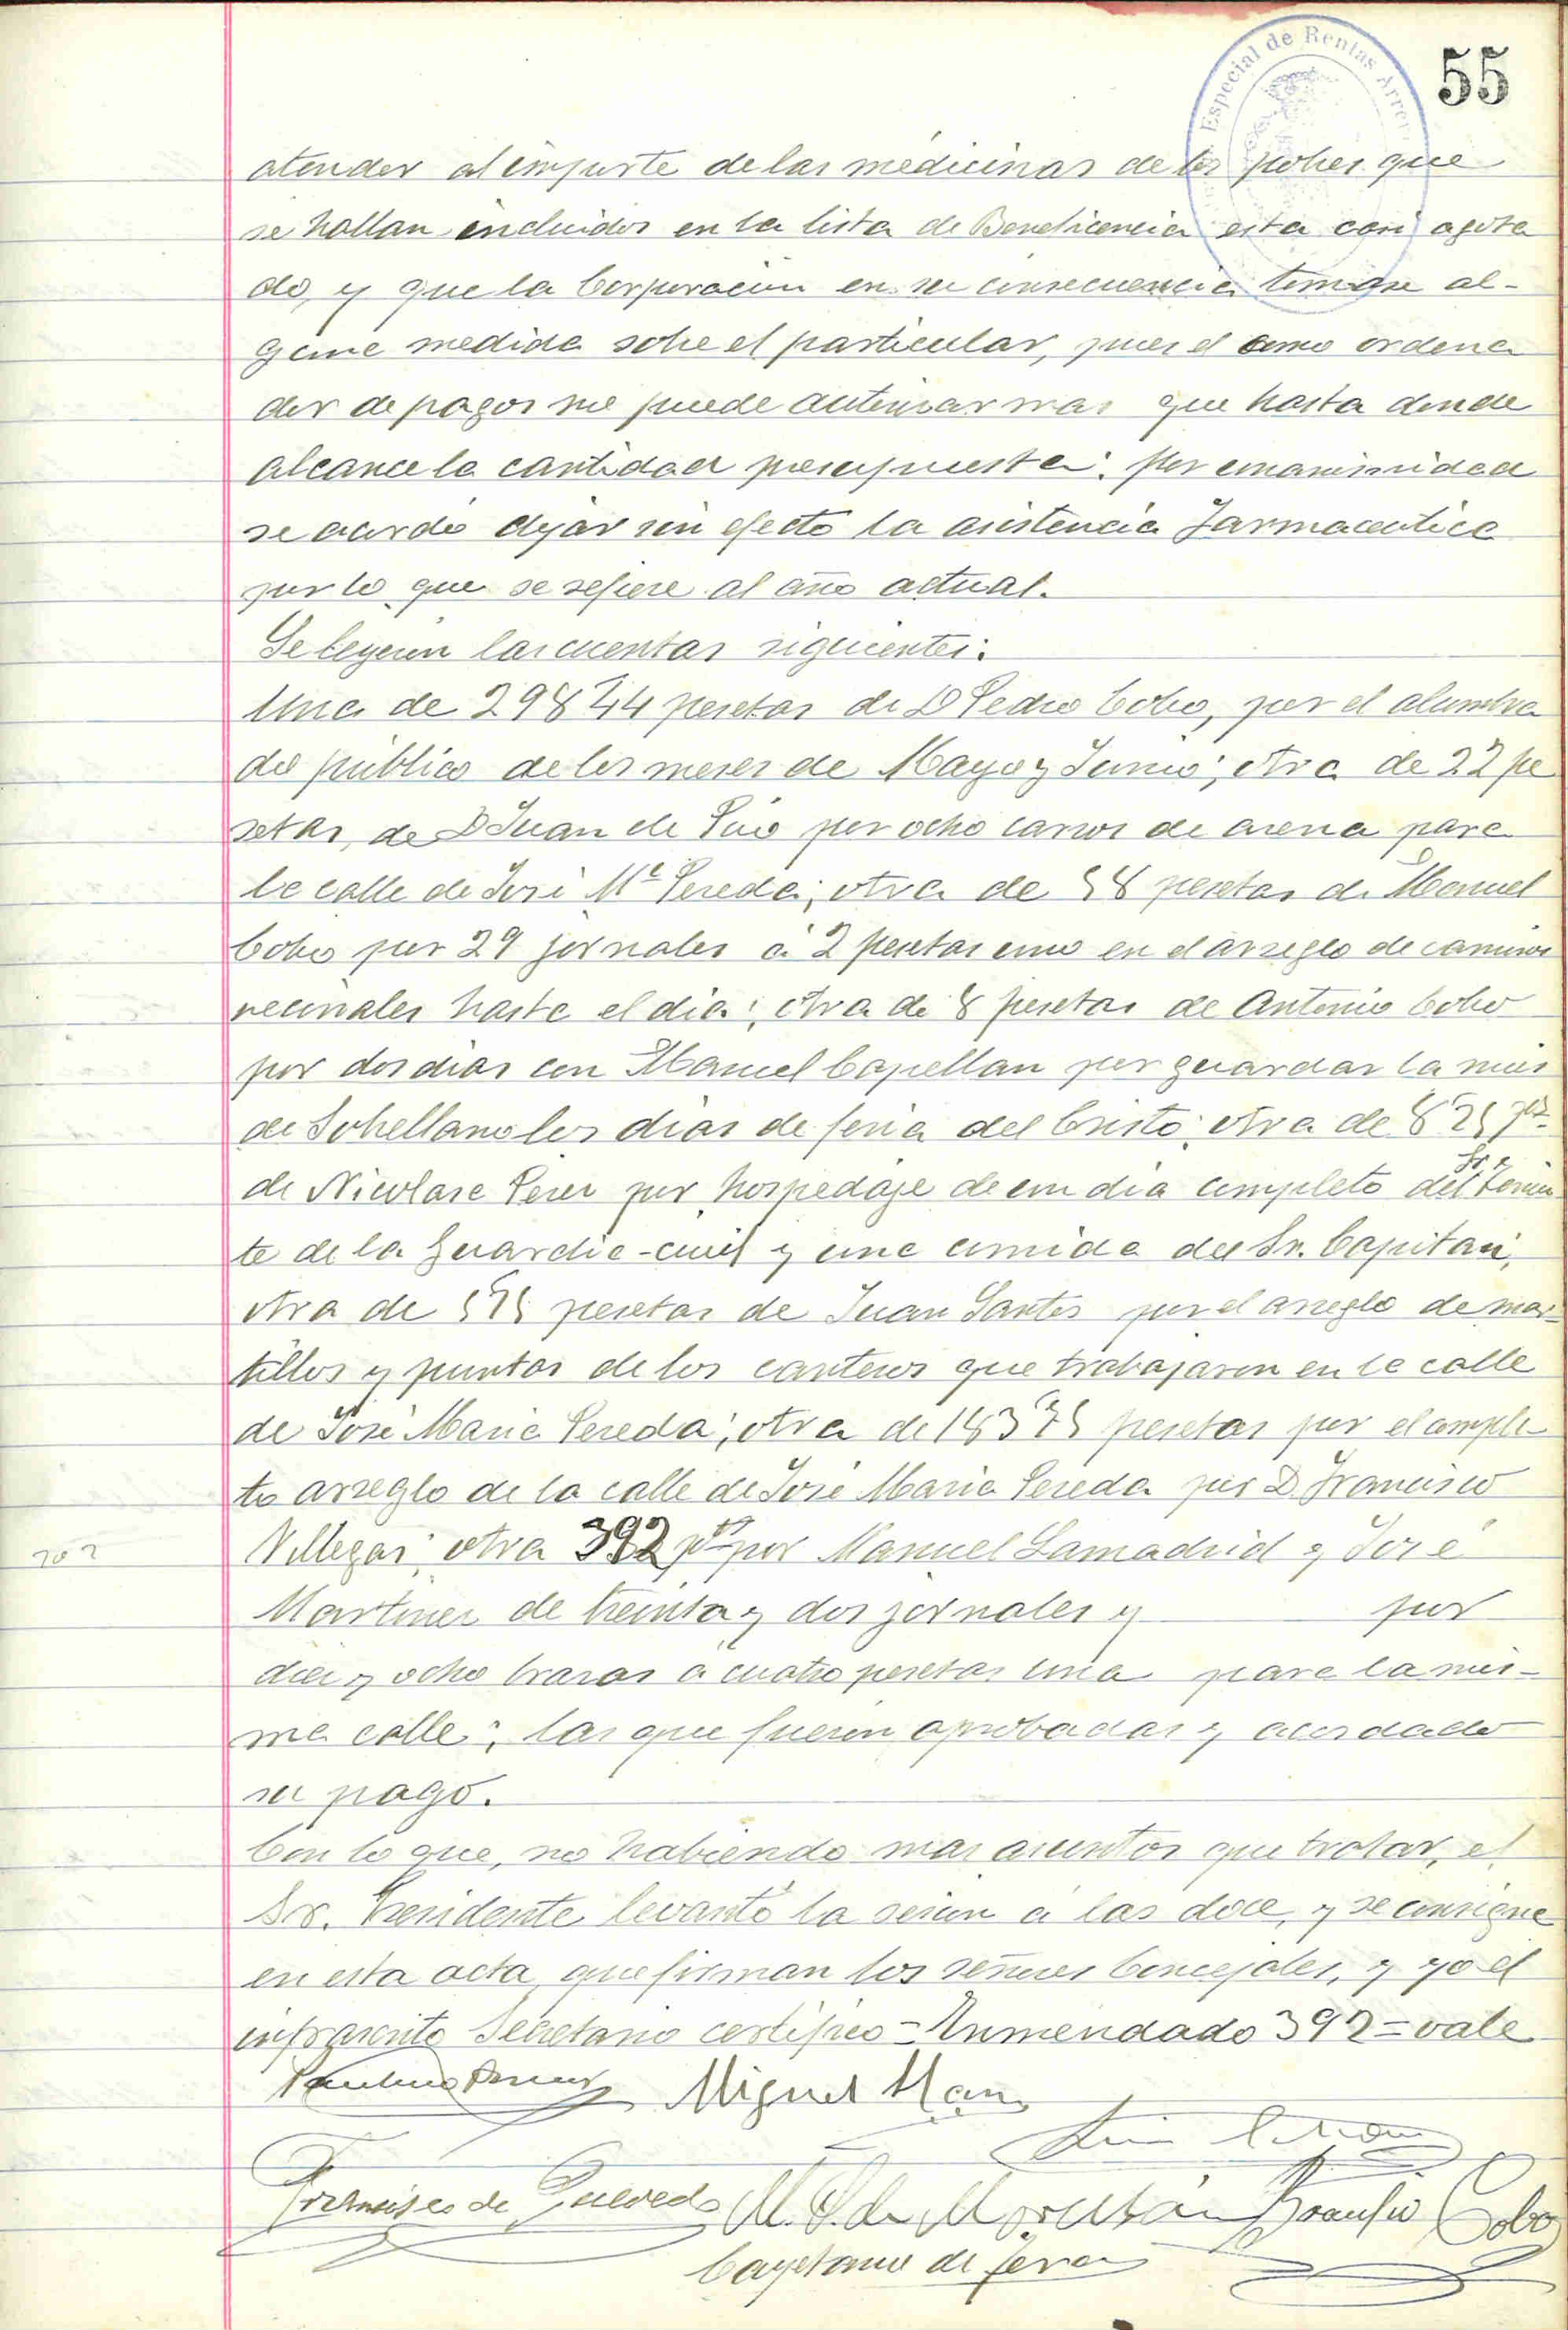 55
Especial de Rentas Arren
atender al importe de las medicinas de los pobres que
se hallan incluidos en la lista de Beneficencia esta casi agota
do, y que la Corporación en su consecuencia tomase al-
guna medida sobre el particular, pues el como ordena
dor de pagos no puede autorizar mas que hasta donde
alcance la cantidad presupuesta; por unanimidad
se acordó dejar sin efecto la asistencia farmaceutica
por lo que se refiere al año actual.
Se leyeron las cuentas siguientes:
Una de 298'44 pesetas de D Pedro Cobo, por el alumbra
do público de los meses de Mayo y Junio; otra de 22 pe
setas, de D Juan de Pío por ocho carros de arena para
la calle de José Mª Pereda; otra de 58 pesetas de Manuel
Cobo por 29 jornales á 2 pesetas uno en el arreglo de caminos
vecinales hasta el dia; otra de 8 pesetas de Antonio Cobo
por dos dias con Manuel Capellan por guardar la mies
de Sobellano los dias de feria del Cristo; otra de 8'25 pts
de Nicolasa Perez por hospedaje de un dia completo del Sr. Tenien
te de la Guardia-civil y una comida del Sr. Capitan;
otra de 5'75 pesetas de Juan Santos por el arreglo de mar-
tillos y puntas de los canteros que trabajaron en la calle
de José Maria Pereda; otra de 183'75 pesetas por el comple-
to arreglo de la calle de José Maria Pereda por D. Francisco
Villegas; otra 392 pts por Manuel Lamadrid y José
Martinez de treinta y dos jornales y por
diez y ocho brazas a cuatro pesetas una para la mis-
ma calle; las que fueron aprobadas y acordado
su pago.
Con lo que, no habiendo mas asuntos que tratar, el
Sr. Presidente levantó la sesion á las doce, y se consigna
en esta acta, que firman los señores Concejales, y yo el
infrascrito Secretario certifico = Enmendado 392 = vale
Miguel
Francisco de Quevedo
Braulio Cobo
Cayetano de